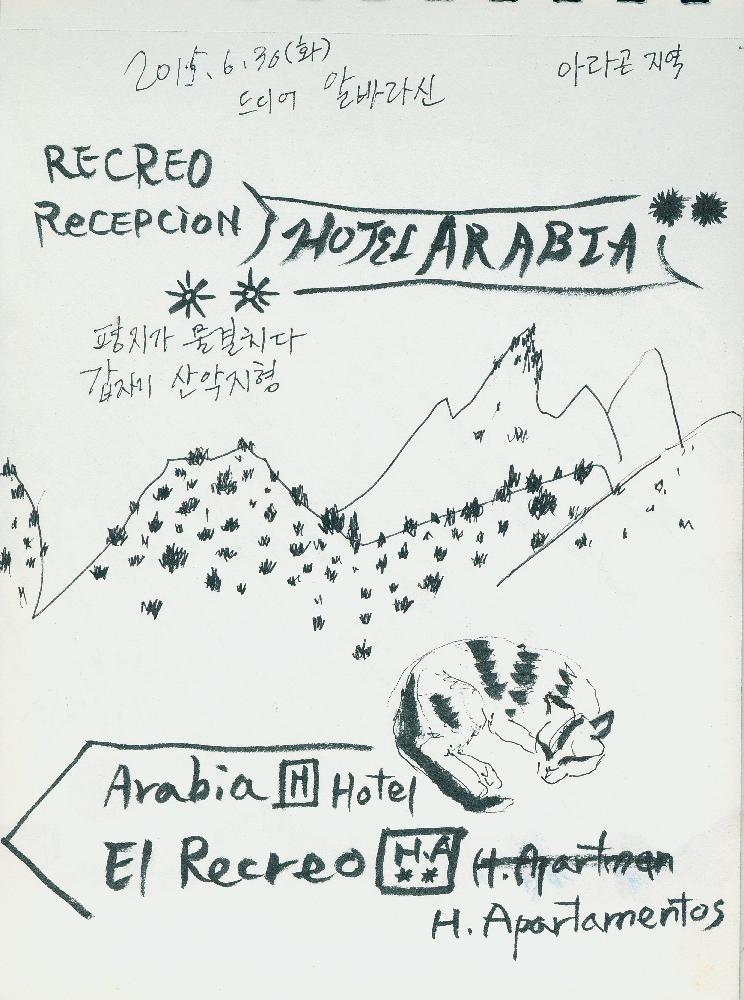 2015.6.30(화)
드디어 알바라신
아라곤 지역
RECREO
RECEPCION
HOTEL ARABIA
평지가 물결치다
갑자기 산악지형
Arabia H Hotel
El Recreo H.A H.Apartmen
H. Apartamentos